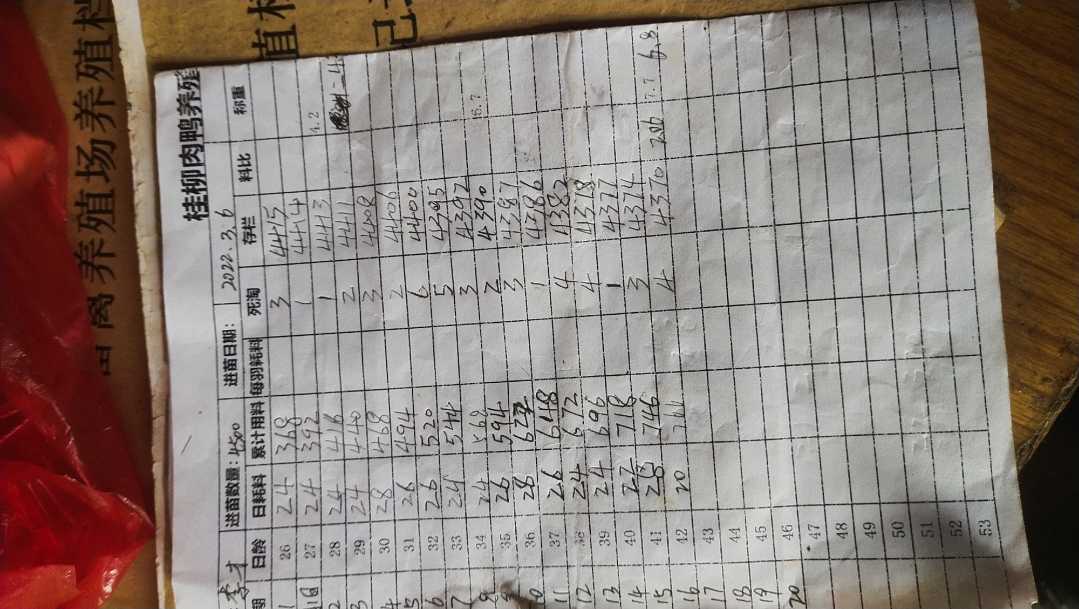 畜禽养殖场养殖档
值档
记
桂柳肉鸭养殖
李才 进苗数量: 4500 进苗日期: 2022.3.6
期 日龄 日耗料 累计用料 每羽耗料 死淘 存栏 料比 称重
1 26 24 368 3 4415
27 24 392 1 4414 4.2
2 28 24 416 1 4413
3 29 24 440 2 4411
4 30 28 468 3 4408
5 31 26 494 2 4406
6 32 26 520 6 4400
7 33 24 544 5 4395
8 34 24 568 3 4392
35 26 594 2 4390
10 36 28 622 3 4387
11 37 26 648 1 4386
12 38 24 672 4 4382
13 39 24 696 4 4378
14 40 22 718 1 4377
15 41 28 746 3 4374
16 42 20 4 4370 7.7 6.8
17 43
18 44
19 45
20 46
47
48
49
50
51
52
53